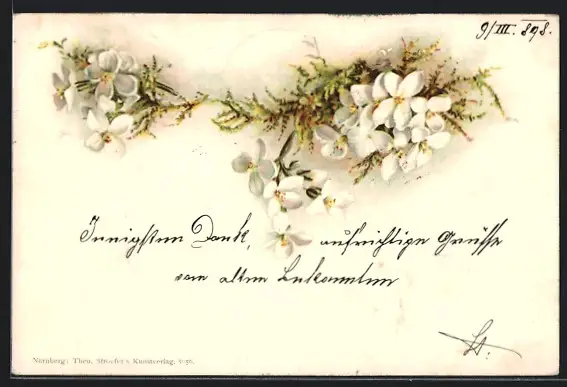 9/III. 898.
Innigsten Dank, aufrichtige Grüsse
vom alten Bekannten
Nürnberg: Theo. Stroefer's Kunstverlag.